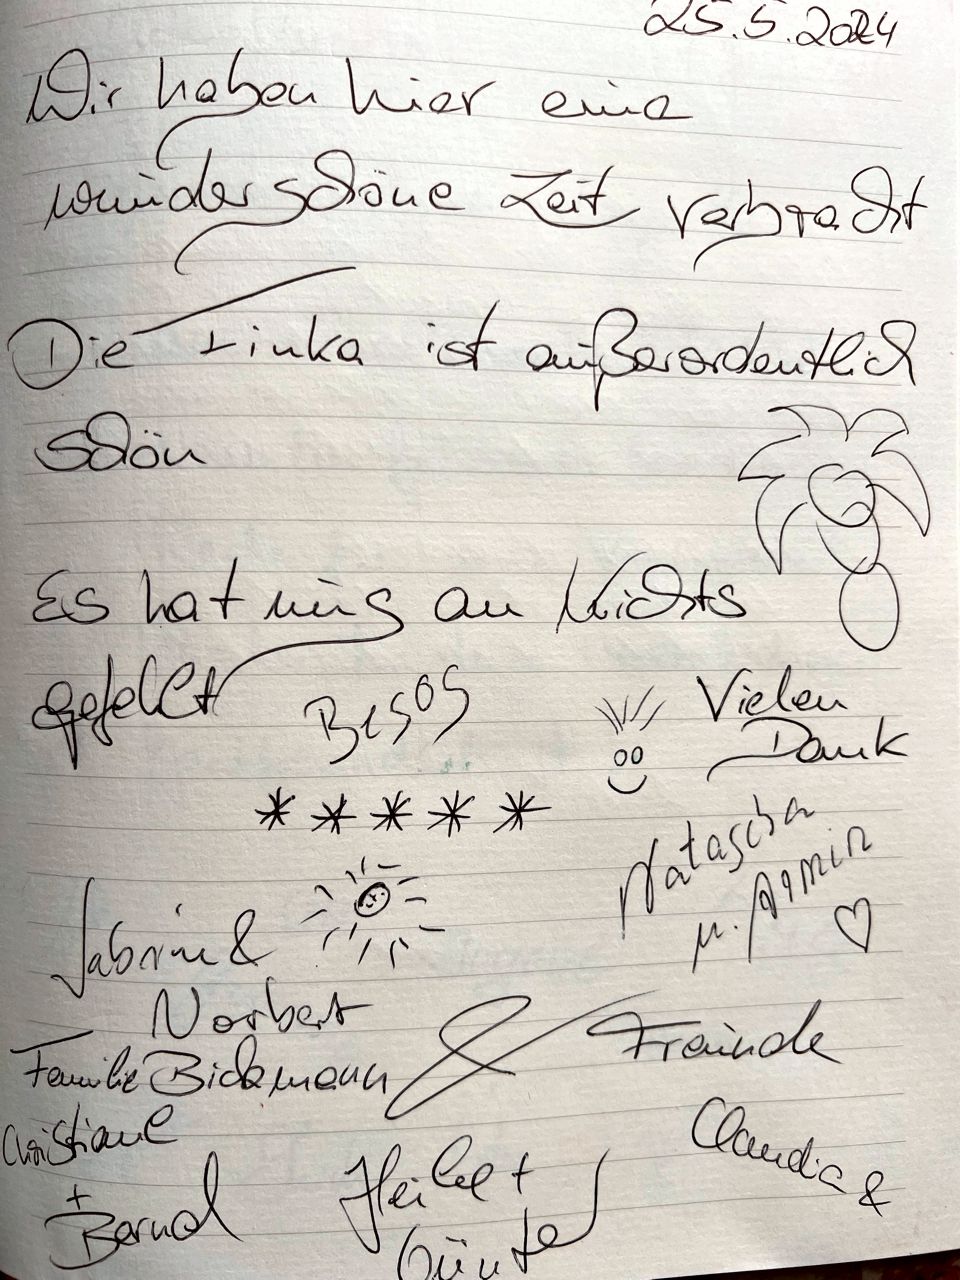 25.5.2024
Wir haben hier eine
wunderschöne Zeit verbracht
Die Finka ist außerordentlich
schön
Es hat uns an Nichts
gefehlt
Besos
Vielen
Dank
* * * * *
Natascha
u. Armin
Sabrine &
Norbert
Familie Bickmann & Freunde
Christiane
+
Bernd
Heike +
Claudia &